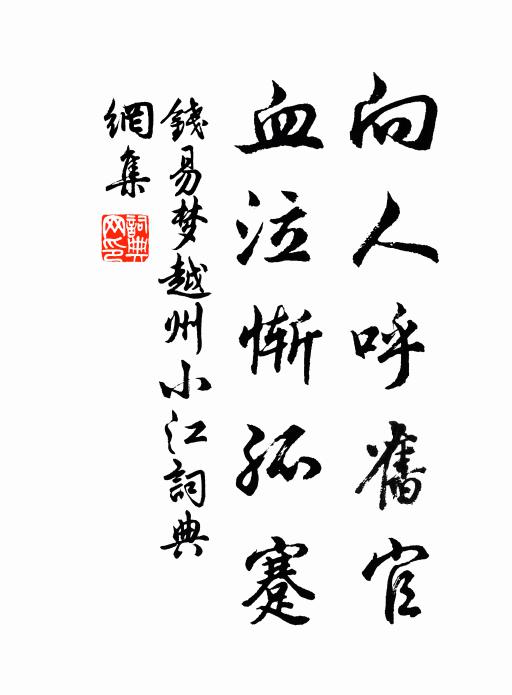 向人呼舊官
血泣慚孤蹇
錢易梦越州小江詞典
網集
詞典网印